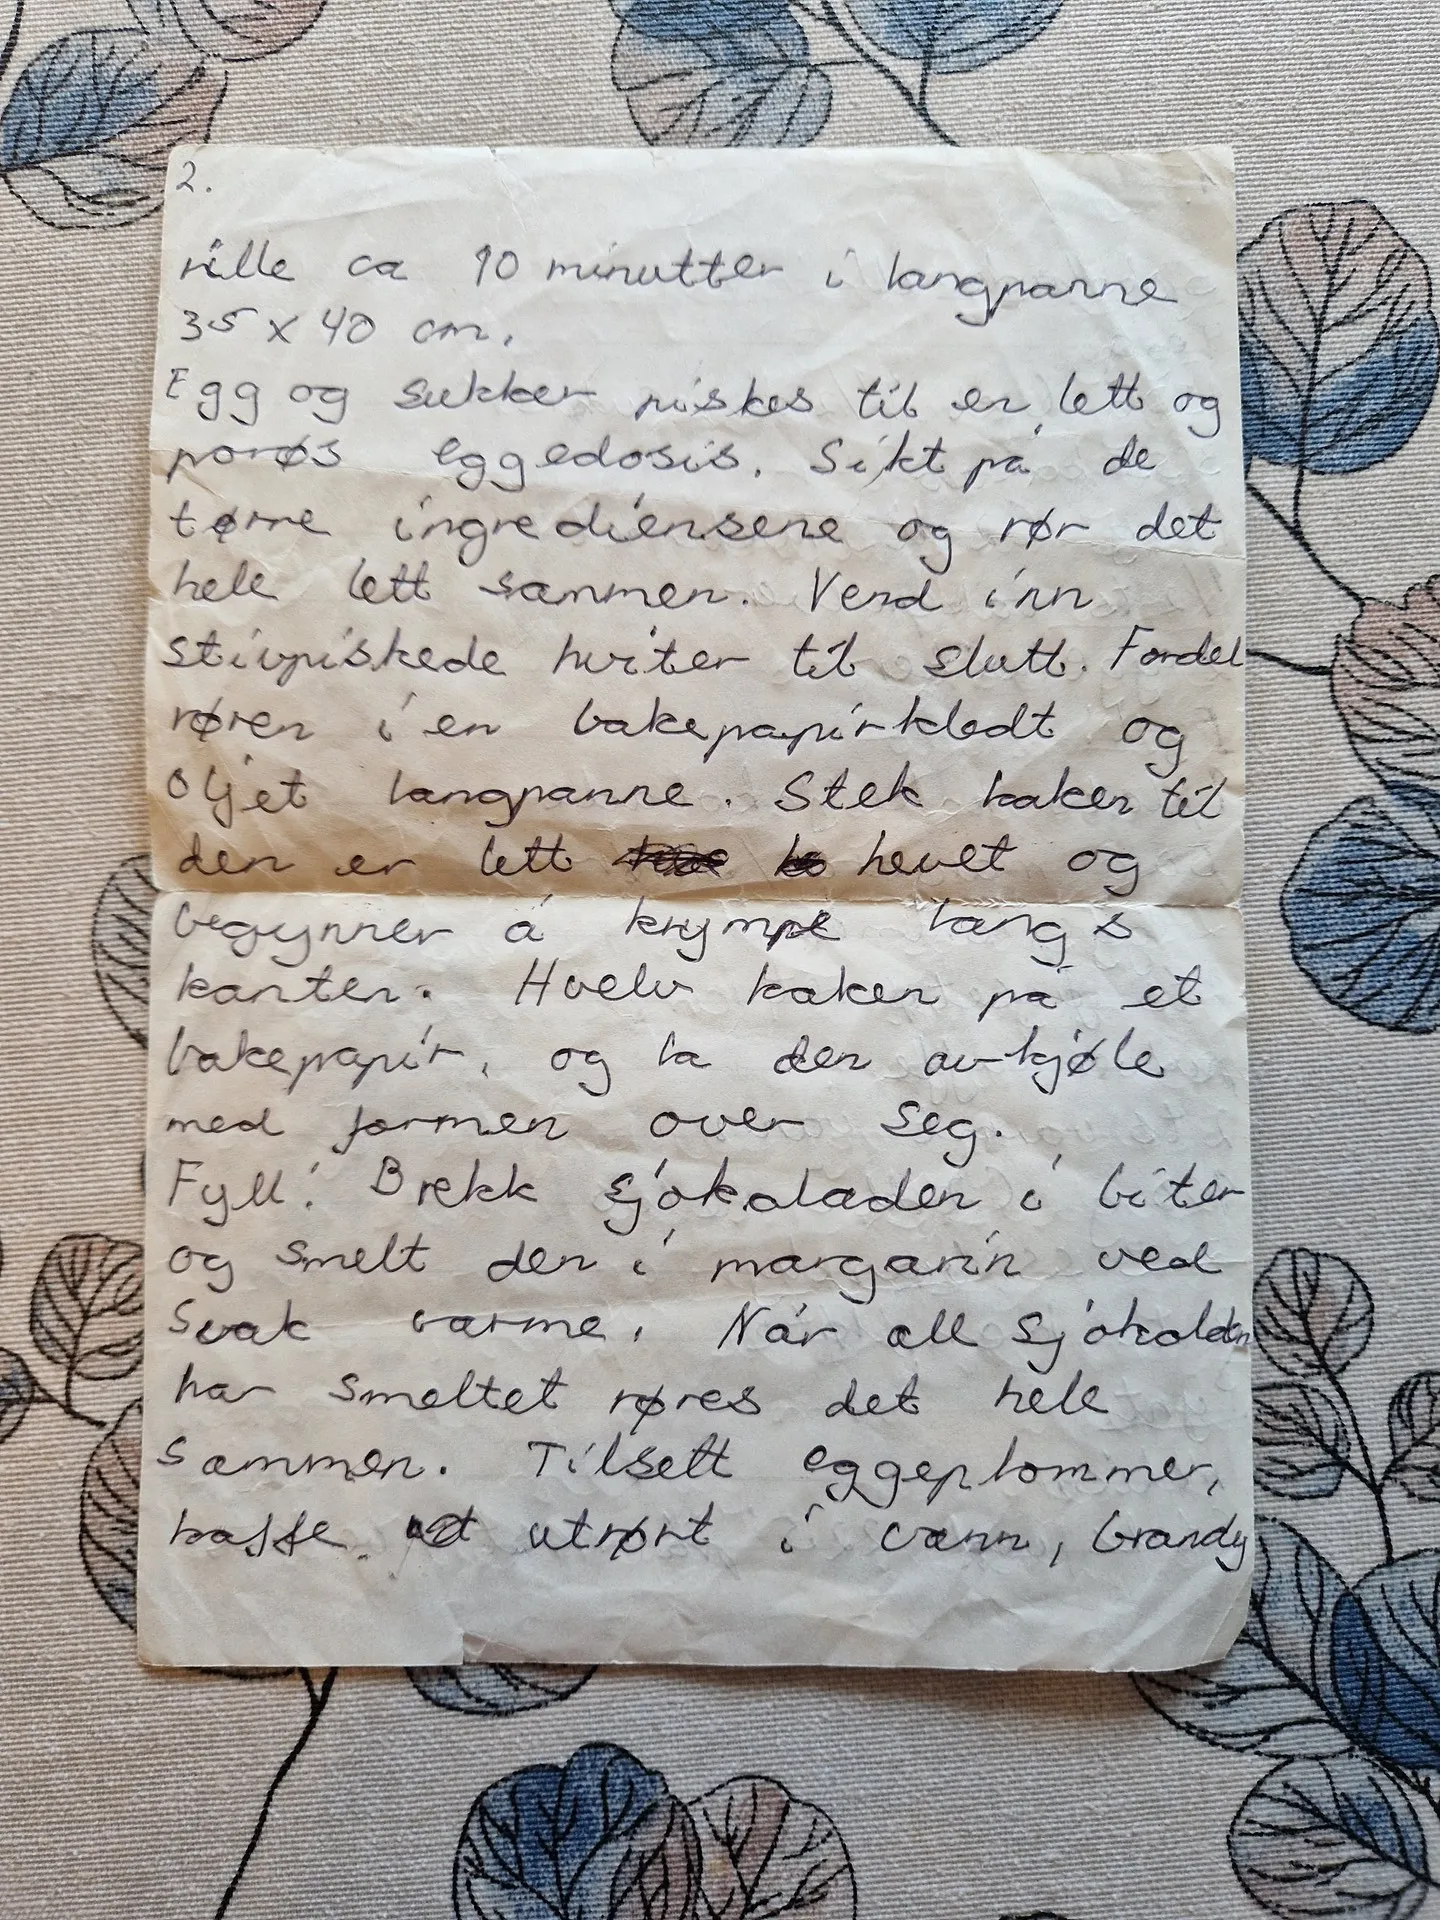 2.
rille ca 10 minutter i langpanne
35 x 40 cm.
Egg og sukker piskes til en lett og
porøs eggedosis. Sikt på de
tørre ingrediensene og rør det
hele lett sammen. Vend inn
stivpiskede hviter til slutt. Fordel
røren i en bakepapirkledt og
oljet langpanne. Stek kaken til
den er lett hevet og
begynner å krympe langs
kanten. Hvelv kaken på et
bakepapir, og la den avkjøle
med formen over seg.
Fyll: Brekk sjokoladen i biter
og smelt den i margarin ved
svak varme. Når all sjokoladen
har smeltet røres det hele
sammen. Tilsett eggeplommer,
kaffe utrørt i vann, brandy